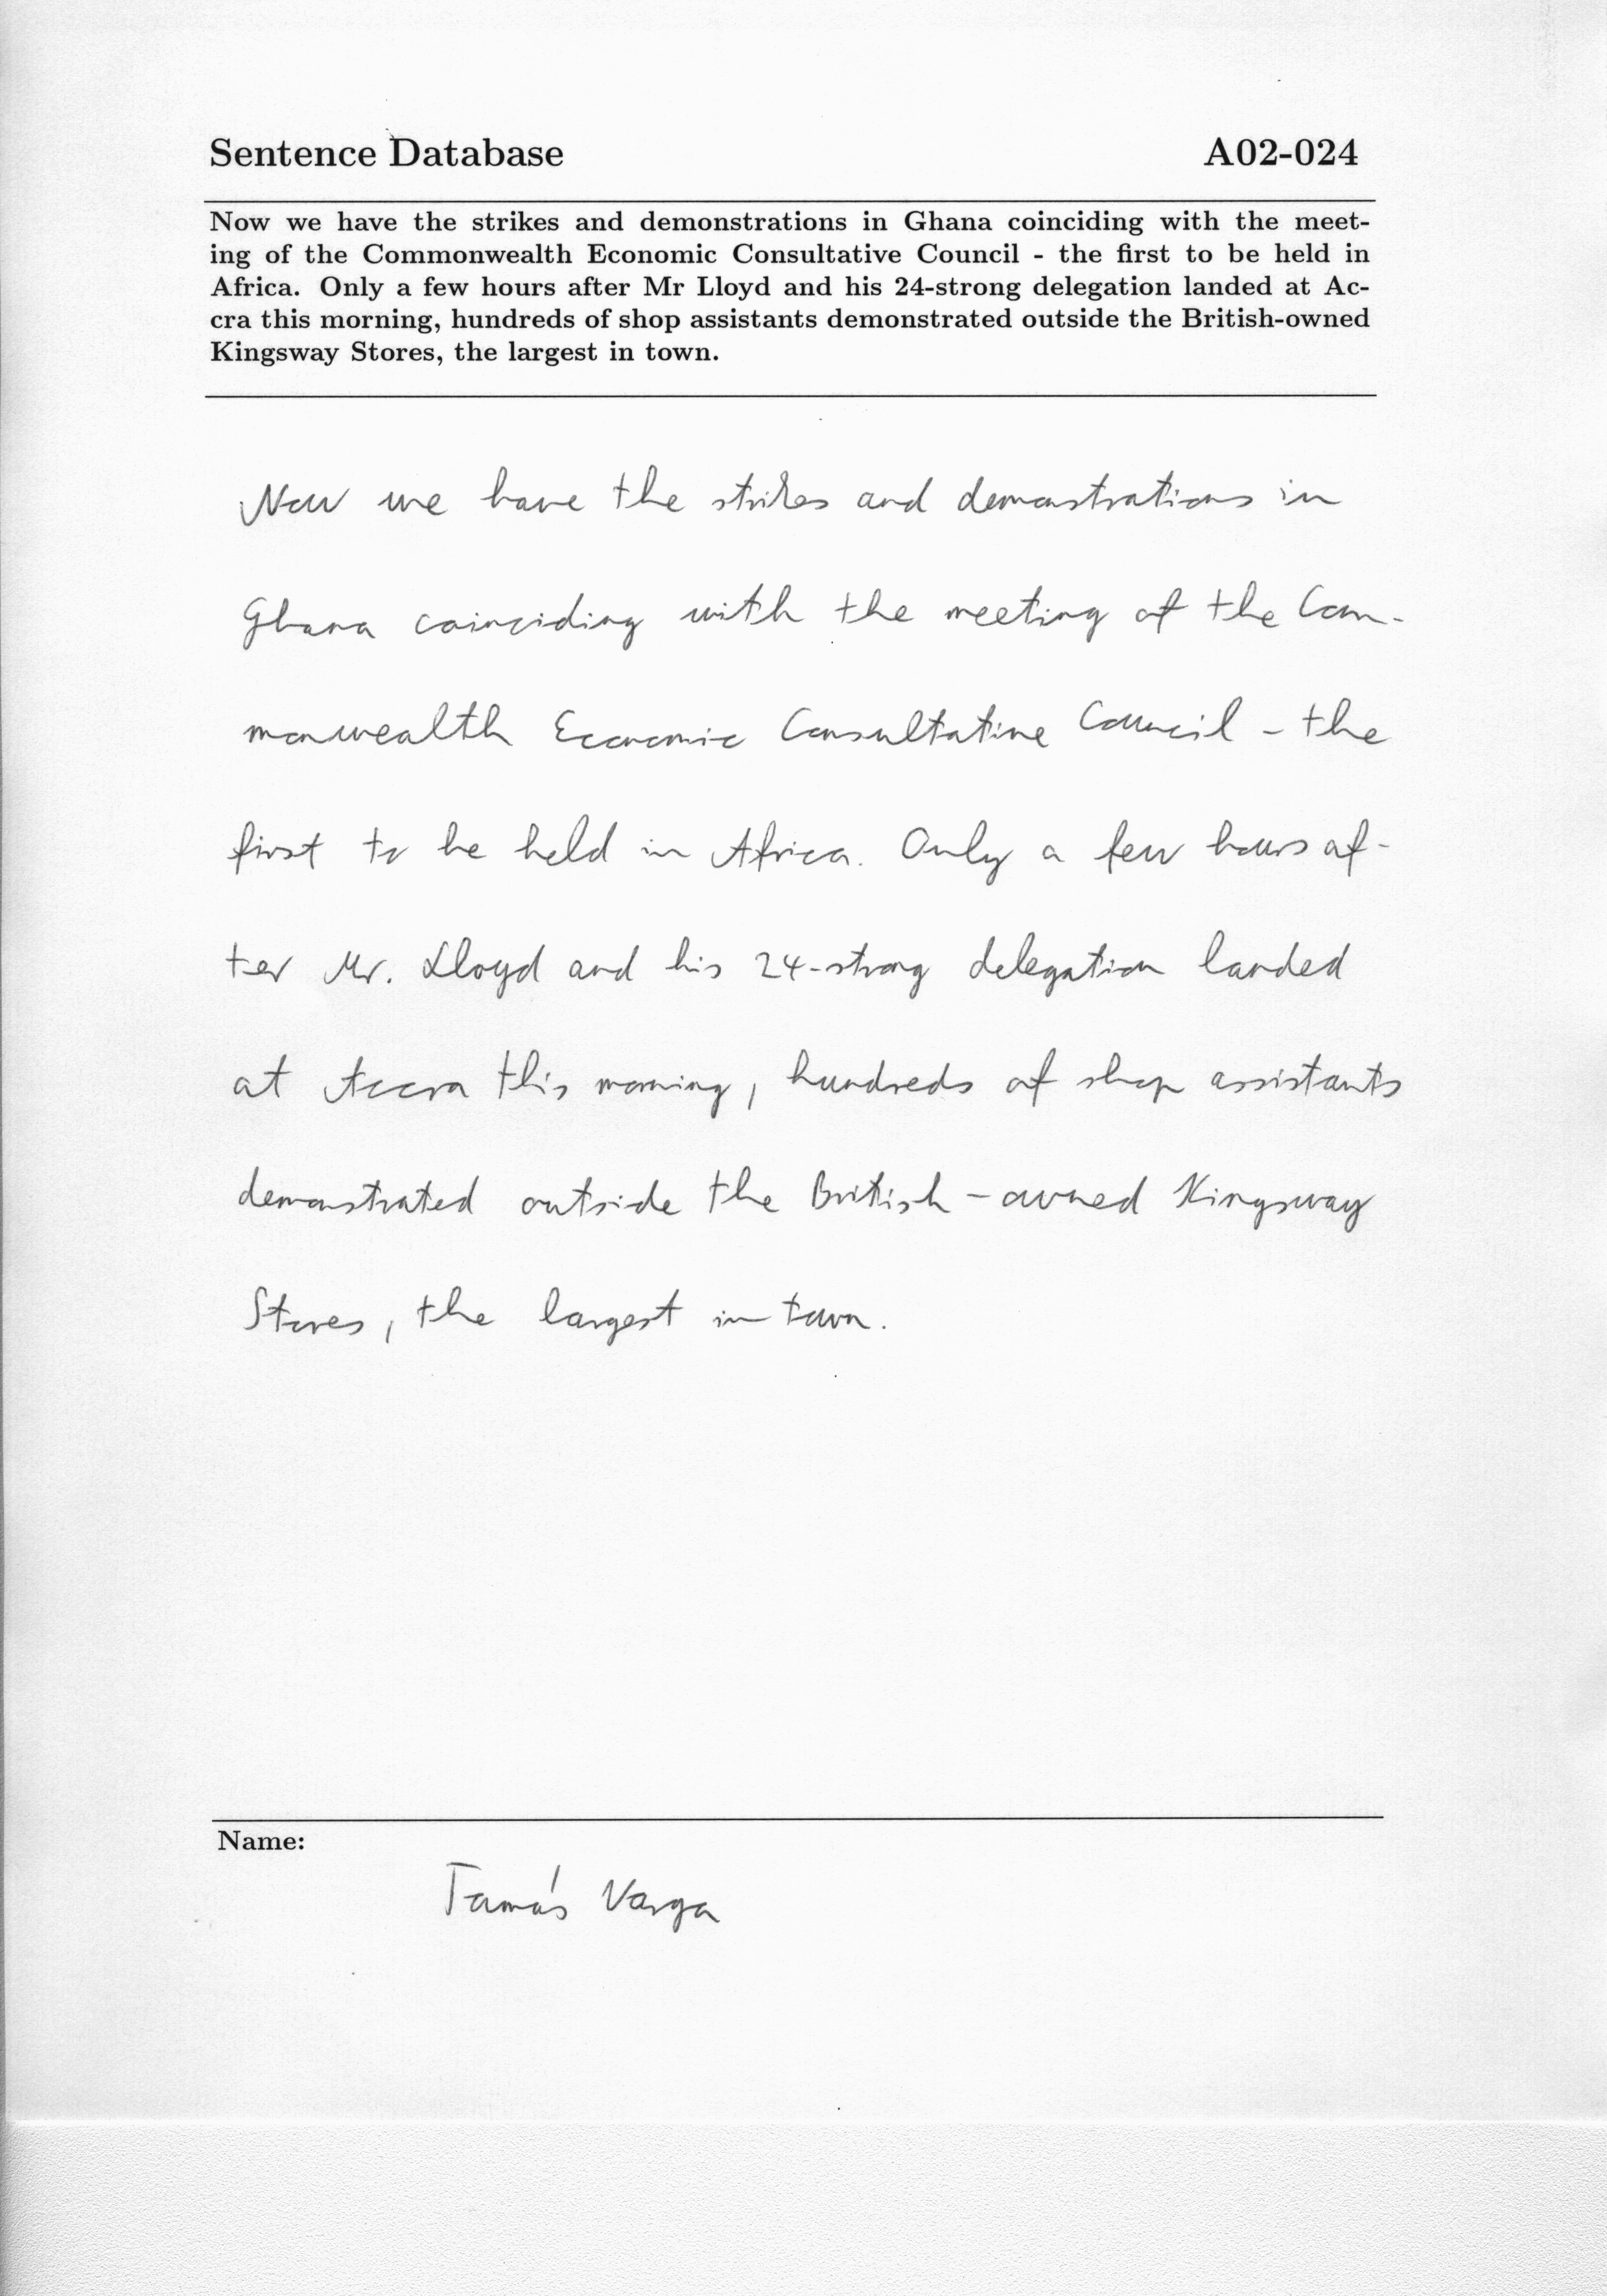 Sentence Database A02-024
Now we have the strikes and demonstrations in Ghana coinciding with the meet-
ing of the Commonwealth Economic Consultative Council - the first to be held in
Africa. Only a few hours after Mr Lloyd and his 24-strong delegation landed at Ac-
cra this morning, hundreds of shop assistants demonstrated outside the British-owned
Kingsway Stores, the largest in town.
Now we have the strikes and demonstrations in
Ghana coinciding with the meeting of the Com-
monwealth Economic Consultative Council - the
first to be held in Africa. Only a few hours af-
ter Mr. Lloyd and his 24-strong delegation landed
at Accra this morning, hundreds of shop assistants
demonstrated outside the British-owned Kingsway
Stores, the largest in town.
Name:
Tamás Varga